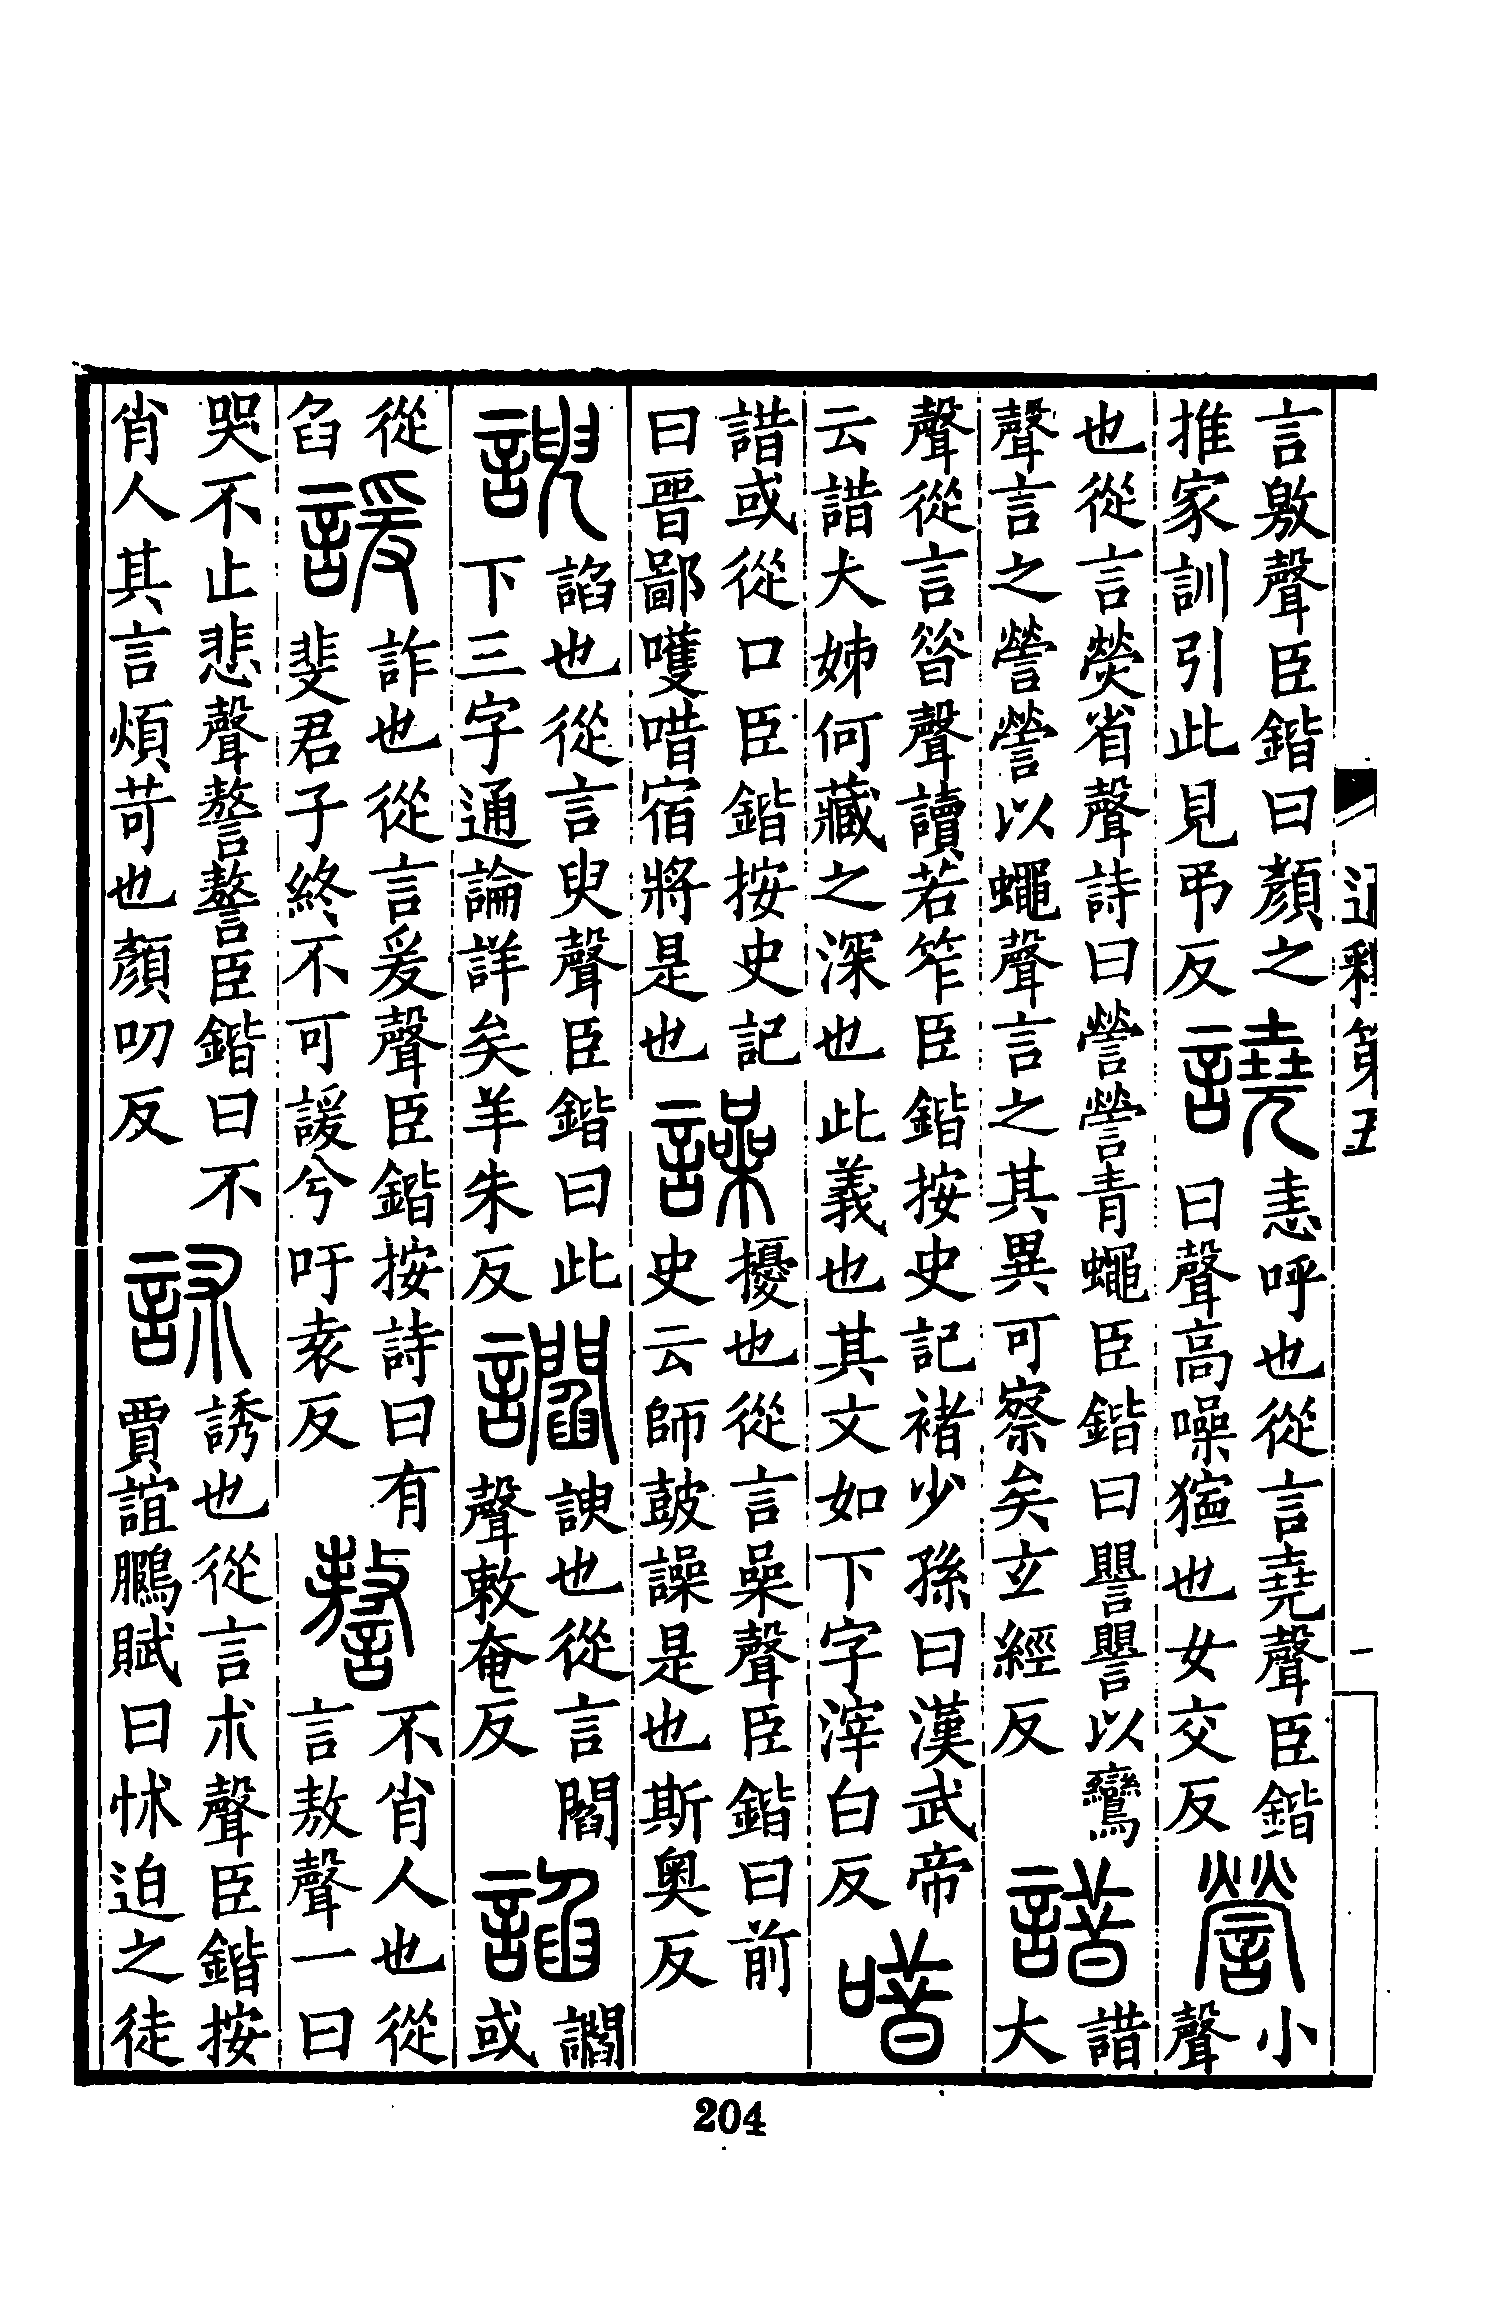 言敫聲臣鍇曰顏之
推家訓引此見弔反
譊
恚呼也從言堯聲臣鍇
曰聲高噪獟也女交反
謍
小
聲
也從言熒省聲詩曰謍謍青蠅臣鍇曰譻譻以鸞
聲言之謍謍以蠅聲言之其異可察矣玄經反
諎
諎
大
聲從言昝聲讀若笮臣鍇按史記褚少孫曰漢武帝
云諎大姊何藏之深也此義也其文如下字滓白反
唶
諎或從口臣鍇按史記
曰晋鄙嚄唶宿將是也
譟
擾也從言喿聲臣鍇曰前
史云師鼓譟是也斯奧反
諛
諂也從言臾聲臣鍇曰此
下三字通論詳矣羊朱反
讇
諛也從言閻
聲敕奄反
諂
讇
或
從
臽
諼
詐也從言爰聲臣鍇按詩曰有
斐君子終不可諼兮吁袁反
謷
不肖人也從
言敖聲一曰
哭不止悲聲謷謷臣鍇曰不
肖人其言煩苛也顏叨反
訹
誘也從言朮聲臣鍇按
賈誼鵬賦曰怵迫之徒
通釋第五
一
204